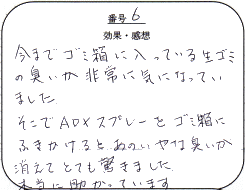 番号 6
効果・感想
今までゴミ箱に入っている生ゴミ
の臭いが非常に気になってい
ました。
そこでADXスプレーをゴミ箱に
ふきかけると、あのいやな臭いが
消えてとても驚きました。
本当に助かっています